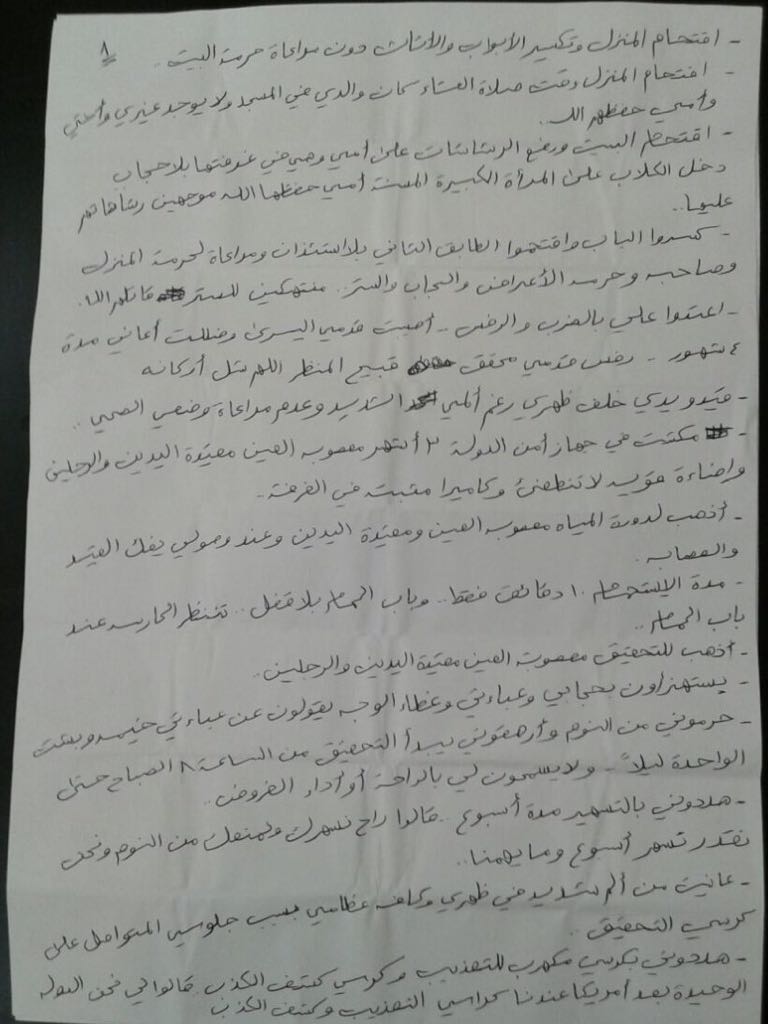 ١
- اقتحام المنزل وتكسير الأبواب والأثاث دون مراعاة حرمة البيت ..
- اقتحام المنزل وقت صلاة العشاء كان والدي في المسجد ولا يوجد غيري وأختي
وأمي حفظهم الله ..
- اقتحام البيت ورفع الرشاشات على أمي وهي في غرفتها بلا حجاب
دخل الكلاب على المرأة الكبيرة المسنة أمي حفظها الله موجهين رشاشاتهم
عليها ..
- كسروا الباب واقتحموا الطابق الثاني بلا استئذان ومراعاة لحرمة المنزل
وصاحبه وحرمة الأعراض والحجاب والستر .. منتهكين للستر قاتلهم الله.
- اعتدوا علي بالضرب والرفس .. أصيبت قدمي اليسرى وظللت أعاني مدة
٤ شهور - رفس قدمي محقق قبيح المنظر اللهم شل أركانه
- قيدو يدي خلف ظهري رغم ألمي الشديد وعدم مراعاة وضعي الصحي ..
- مكثت في جهاز أمن الدولة ٣ أشهر معصوبه العين مقيدة اليدين والرجلين
واضاءة قويه لا تنطفئ وكاميرا مثبته في الغرفة ..
- أذهب لدورة المياه معصوبه العين ومقيدة اليدين وعند وصولي يفك القيد
والعصابه .
- مدة الاستحمام ١٠ دقائق فقط .. وباب الحمام بلا قفل .. تنتظر الحارسه عند
باب الحمام ..
- أذهب للتحقيق معصوبة العين مقيدة اليدين والرجلين ..
- يستهزاون بحجابي وعباءتي وغطاء الوجه يقولون عن عباءتي خيمه وبشت
- حرموني من النوم وأرهقوني يبدأ التحقيق من الساعة ٨ الصباح حتى
الواحدة ليلاً - ولا يسمحون لي بالراحة أو أداء الفروض ..
- هددوني بالتسهير مدة أسبوع .. قالوا راح نسهرك ونمنعك من النوم ونحن
نقدر نسهر أسبوع وما يهمنا ..
- عانيت من ألم شديد في ظهري وكافه عظامي بسبب جلوسي المتواصل على
كرسي التحقيق ..
- هددوني بكرسي مكهرب للتعذيب وكرسي كشف الكذب قالوا لي نحن الدوله
الوحيدة بعد أمريكا عندنا كراسي التعذيب وكشف الكذب